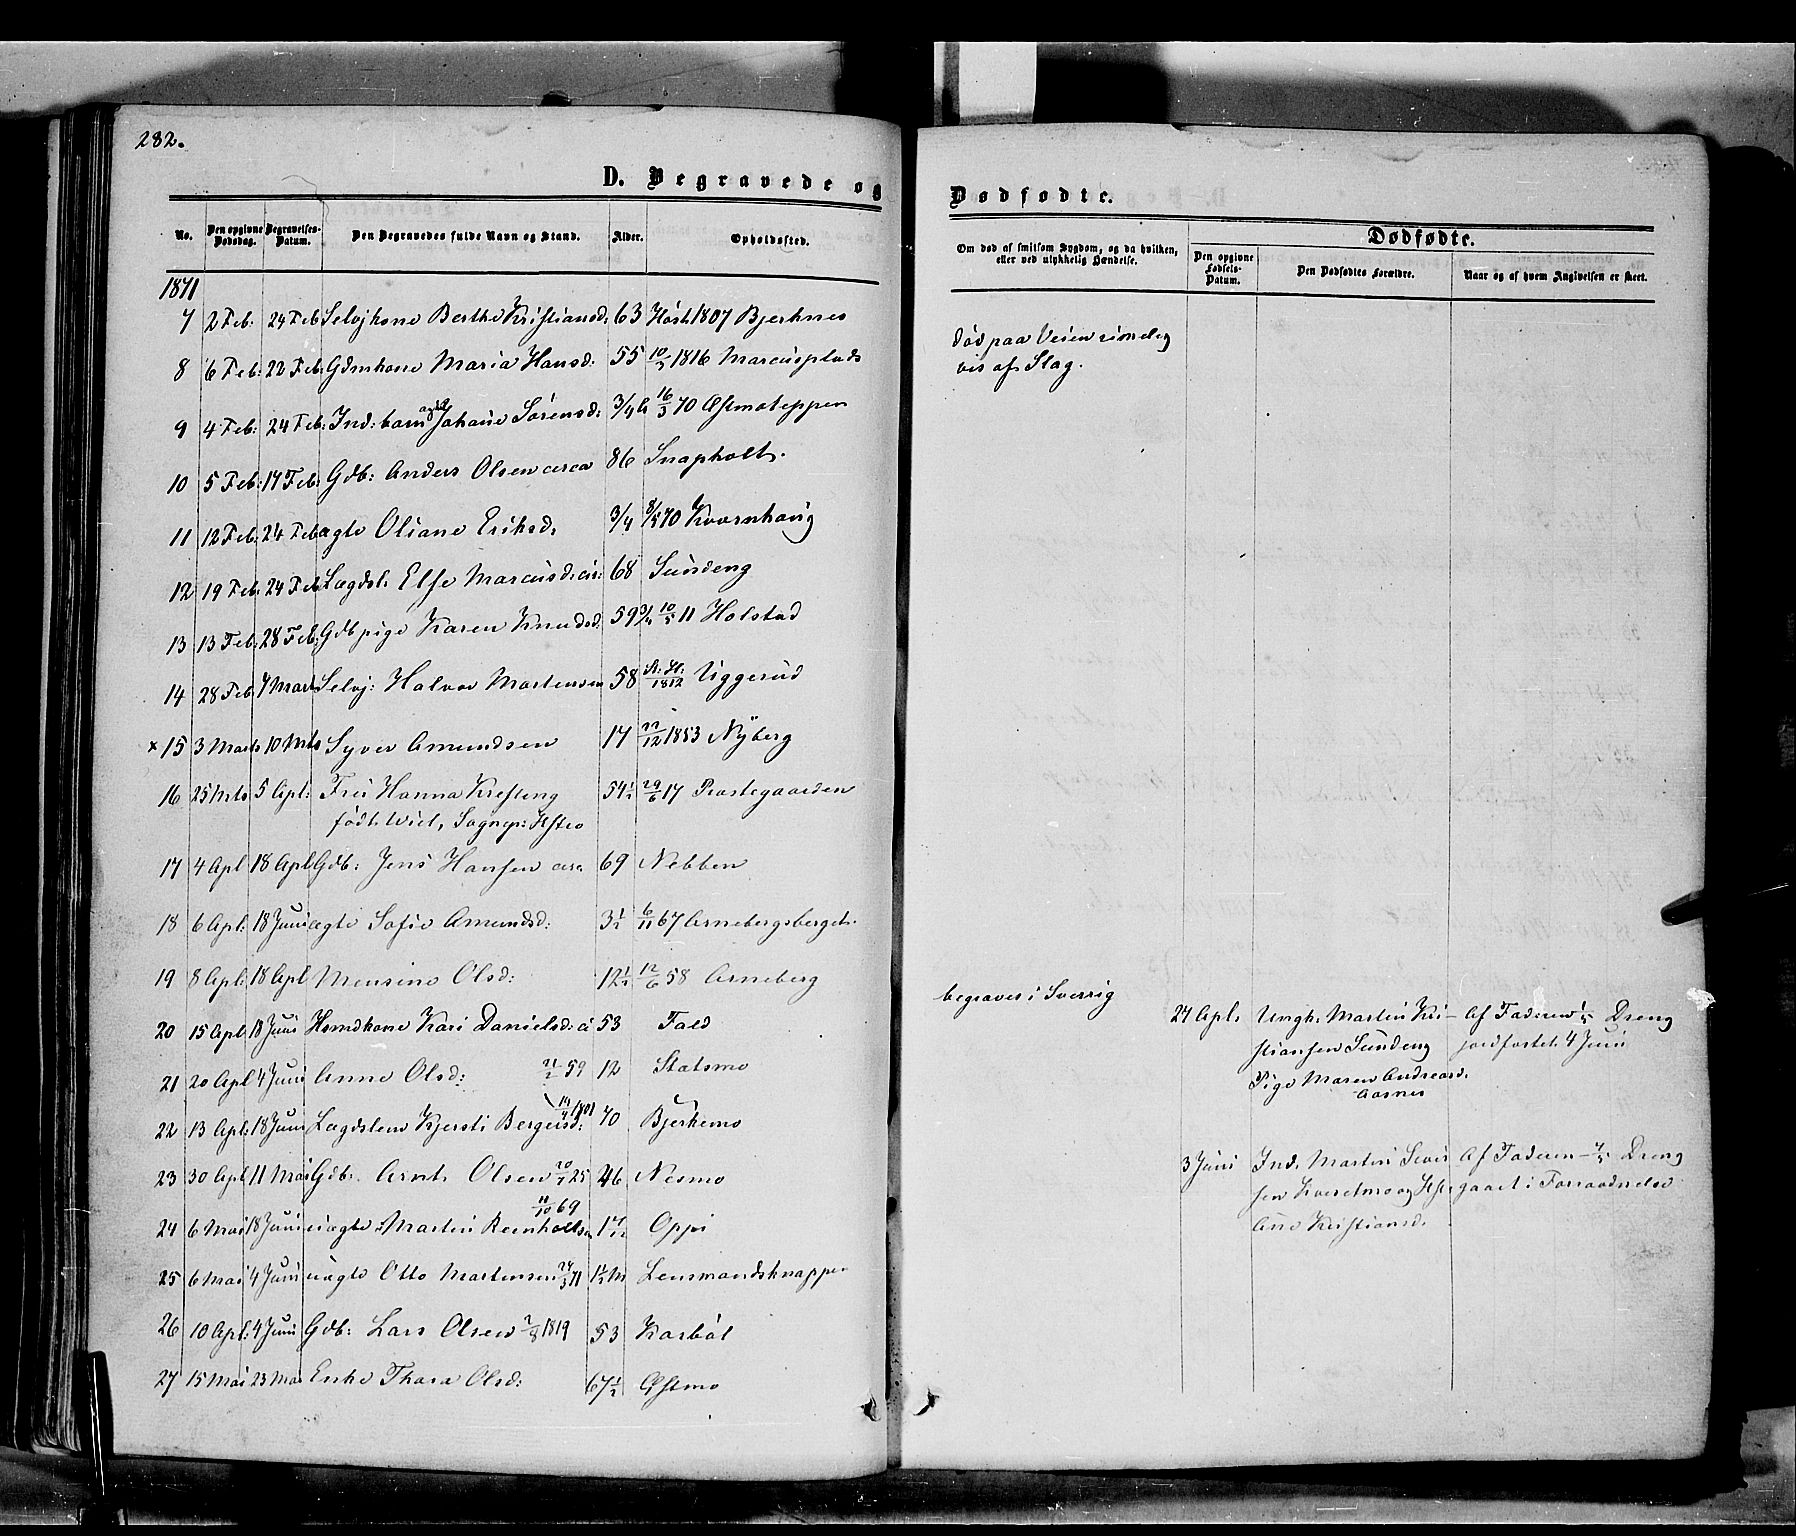 282.
D. Begravede og
No. Den opgivne Dødsdag. Begravelses-Datum. Den Begravedes fulde Navn og Stand. Alder. Opholdssted.
1871
7 2 Feb: 24 Feb Selvjkone Berthe Kristiansd: 63 Høst 1807 Bjerknes
8 6 Feb: 22 Feb: Gdmkone Maria Hansd: 55 1816 Marcusplads
9 4 Feb: 24 Feb: Ind: barn ægte Johane Sørensd: 3/4 16/3 70 Astmoteppen
10 5 Feb: 17 Feb: Gdb: Anders Olsen circa 86 Snapholt.
11 12 Feb: 24 Feb: ægte Oliane Eriksd. 3/4 8/5 70 Kværnhaug
12 19 Feb: 24 Feb Lægdsl: Else Marcusd: cir: 68 Sundeng
13 13 Feb: 28 Feb: Gdb pige Karen Knudsd: 59 3/4 10/5 11 Holstad
14 28 Feb 7 Mart Selvj: Halvor Mortensen 58 1812 Uggerud
x 15 3 Marts 10 Mts Syver Amundsen 17 22/12 1853 Nÿberg
16 25 Mts 5 Apl: Fru Hanna Kresting 54 1/2 29/6 17 Præstegaarden
født Wiel, Sognep: Hstro
17 4 Apl 18 Apl Gdb: Jens Hansen circa 69 Nebben
18 6 Apl: 18 Juni ægte Sofie Amundsd: 3 1/2 6/11 67 Arnebergsberget.
19 8 Apl: 18 Apl Mensine Olsd: 12 1/2 12/6 58 Arneberg
20 15 Apl: 18 Juni Hsmdkone Kari Danielsd: ci 53 Fald
21 20 Apl 4 Juni Anne Olsd: 21/2 59 12 Statsmo
22 13 Apl: 18 Juni Lægdslem Kjersti Bergersd: 19/4 1801 70 Bjerkemo
23 30 Apl 11 Mai Gdb: Arnt Olsen 20/1 25 46 Nesmo
24 6 Mai 18 Juni uægte Martin Reenholtsen 11/10 69 1 7/12 Oppi
25 6 Mai 4 Juni uægte Otto Martensen 24/3 71 1 1/2 M Lensmandsknappen
26 10 Apl: 4 Juni Gdb: Lars Olsen 2/8 1819 53 Karbøl
27 15 Mai 23 Mai Enke Thora Olsd: 67 1/2 Østmo
Dødfødte.
Om død af smitsom Sygdom, og da hvilken, eller ved ulykkelig Hændelse.
Dødfødte.
Den opgivne Fødsels-Datum. Den Dødfødtes Forældre. Naar og af hvem Angivelsen er skeet.
død paa Veien rimelig
vis af Slag.
begraves i Sverrig
24 Apl. Ungk. Martin Kri- Af Faderen Dreng
stiansen Sundeng jordfæstet 4 Juni
Pige Maren Andreasd.
Aasnes
3 Juni Ind. Martin Siver Af Faderen - Dreng
sen Kveretmo og Hstr gaaet i Forraadnelse
Ane Kristiansd.